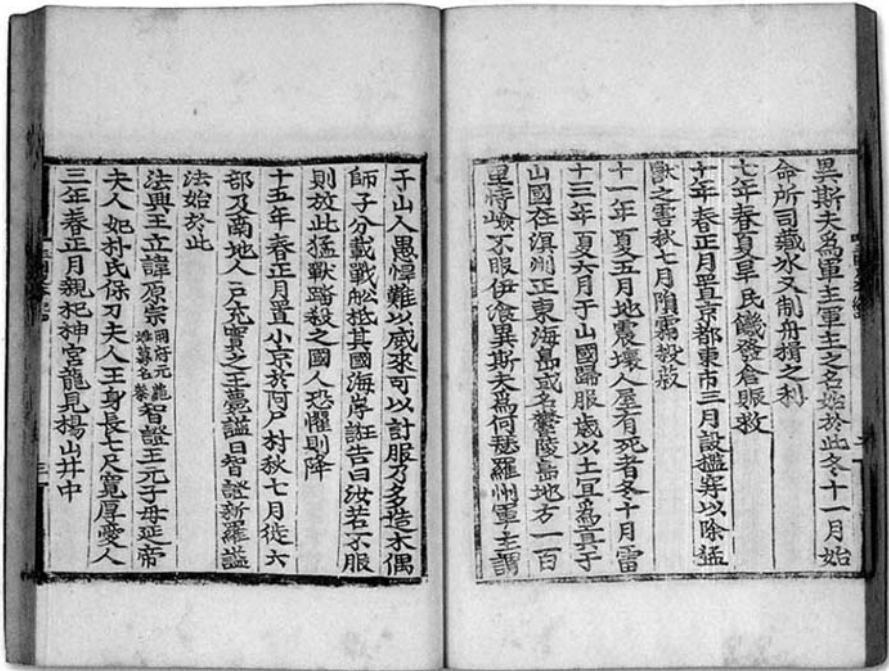 異斯夫爲軍主軍主之名始於此冬十一月始
命所司藏氷又制舟楫之利
七年春夏旱民饑發倉賑救
十年春正月置京都東市三月設檻穽以除猛
獸之害秋七月隕霜殺菽
十一年夏五月地震壞人屋有死者冬十月雷
十三年夏六月于山國歸服歲以土宜爲貢于
山國在溟州正東海島或名欝陵島地方一百
里恃嶮不服伊湌異斯夫爲何瑟羅州軍主謂
于山人愚悍難以威來可以計服乃多造木偶
師子分載戰舩抵其國海岸誑告曰汝若不服
則放此猛獸踏殺之國人恐懼則降
十五年春正月置小京於阿尸村秋七月徙六
部及南地人戶充實之王薨謚曰智證新羅謚
法始於此
法興王立諱原宗冊府元龜姓募名秦智證王元子母延帝
夫人妃朴氏保刀夫人王身長七尺寬厚愛人
三年春正月親祀神宮龍見楊山井中